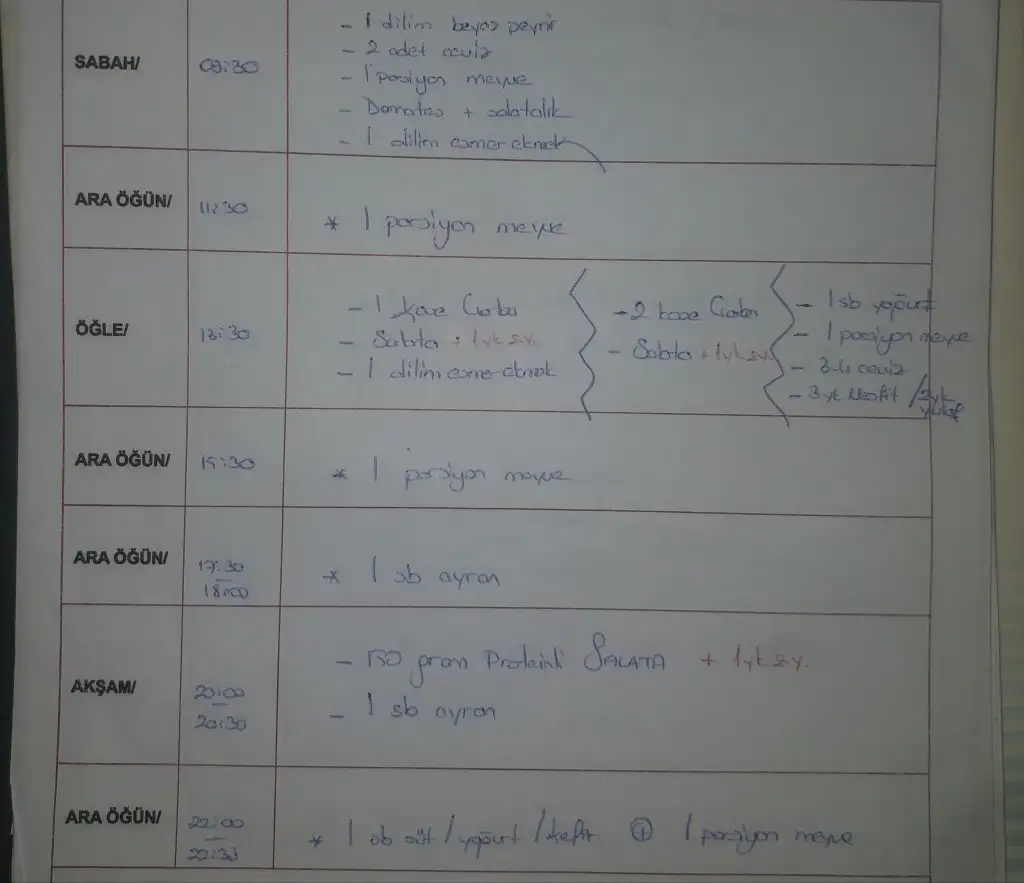 SABAH/
09:30
- 1 dilim beyaz peynir
- 2 adet ceviz
- 1 porsiyon meyve
- Domates + salatalık
- 1 dilim esmer ekmek
ARA ÖĞÜN/
11:30
* 1 porsiyon meyve
ÖĞLE/
13:30
- 1 kase Çorba
- Salata + 1yk z.y.
- 1 dilim esmer ekmek
- 2 kase Çorba
- Salata + 1yk z.y.
- 1 sb yoğurt
- 1 porsiyon meyve
- 3-4 ceviz
- 3 yk Nesfit / 3yk
yulaf
ARA ÖĞÜN/
15:30
* 1 porsiyon meyve
ARA ÖĞÜN/
17:30
18:00
* 1 sb ayran
AKŞAM/
20:00
20:30
- 150 gram Proteinli SALATA + 1yk z.y.
- 1 sb ayran
ARA ÖĞÜN/
22:00
22:30
* 1 sb süt / yoğurt / kefir ⊕ 1 porsiyon meyve